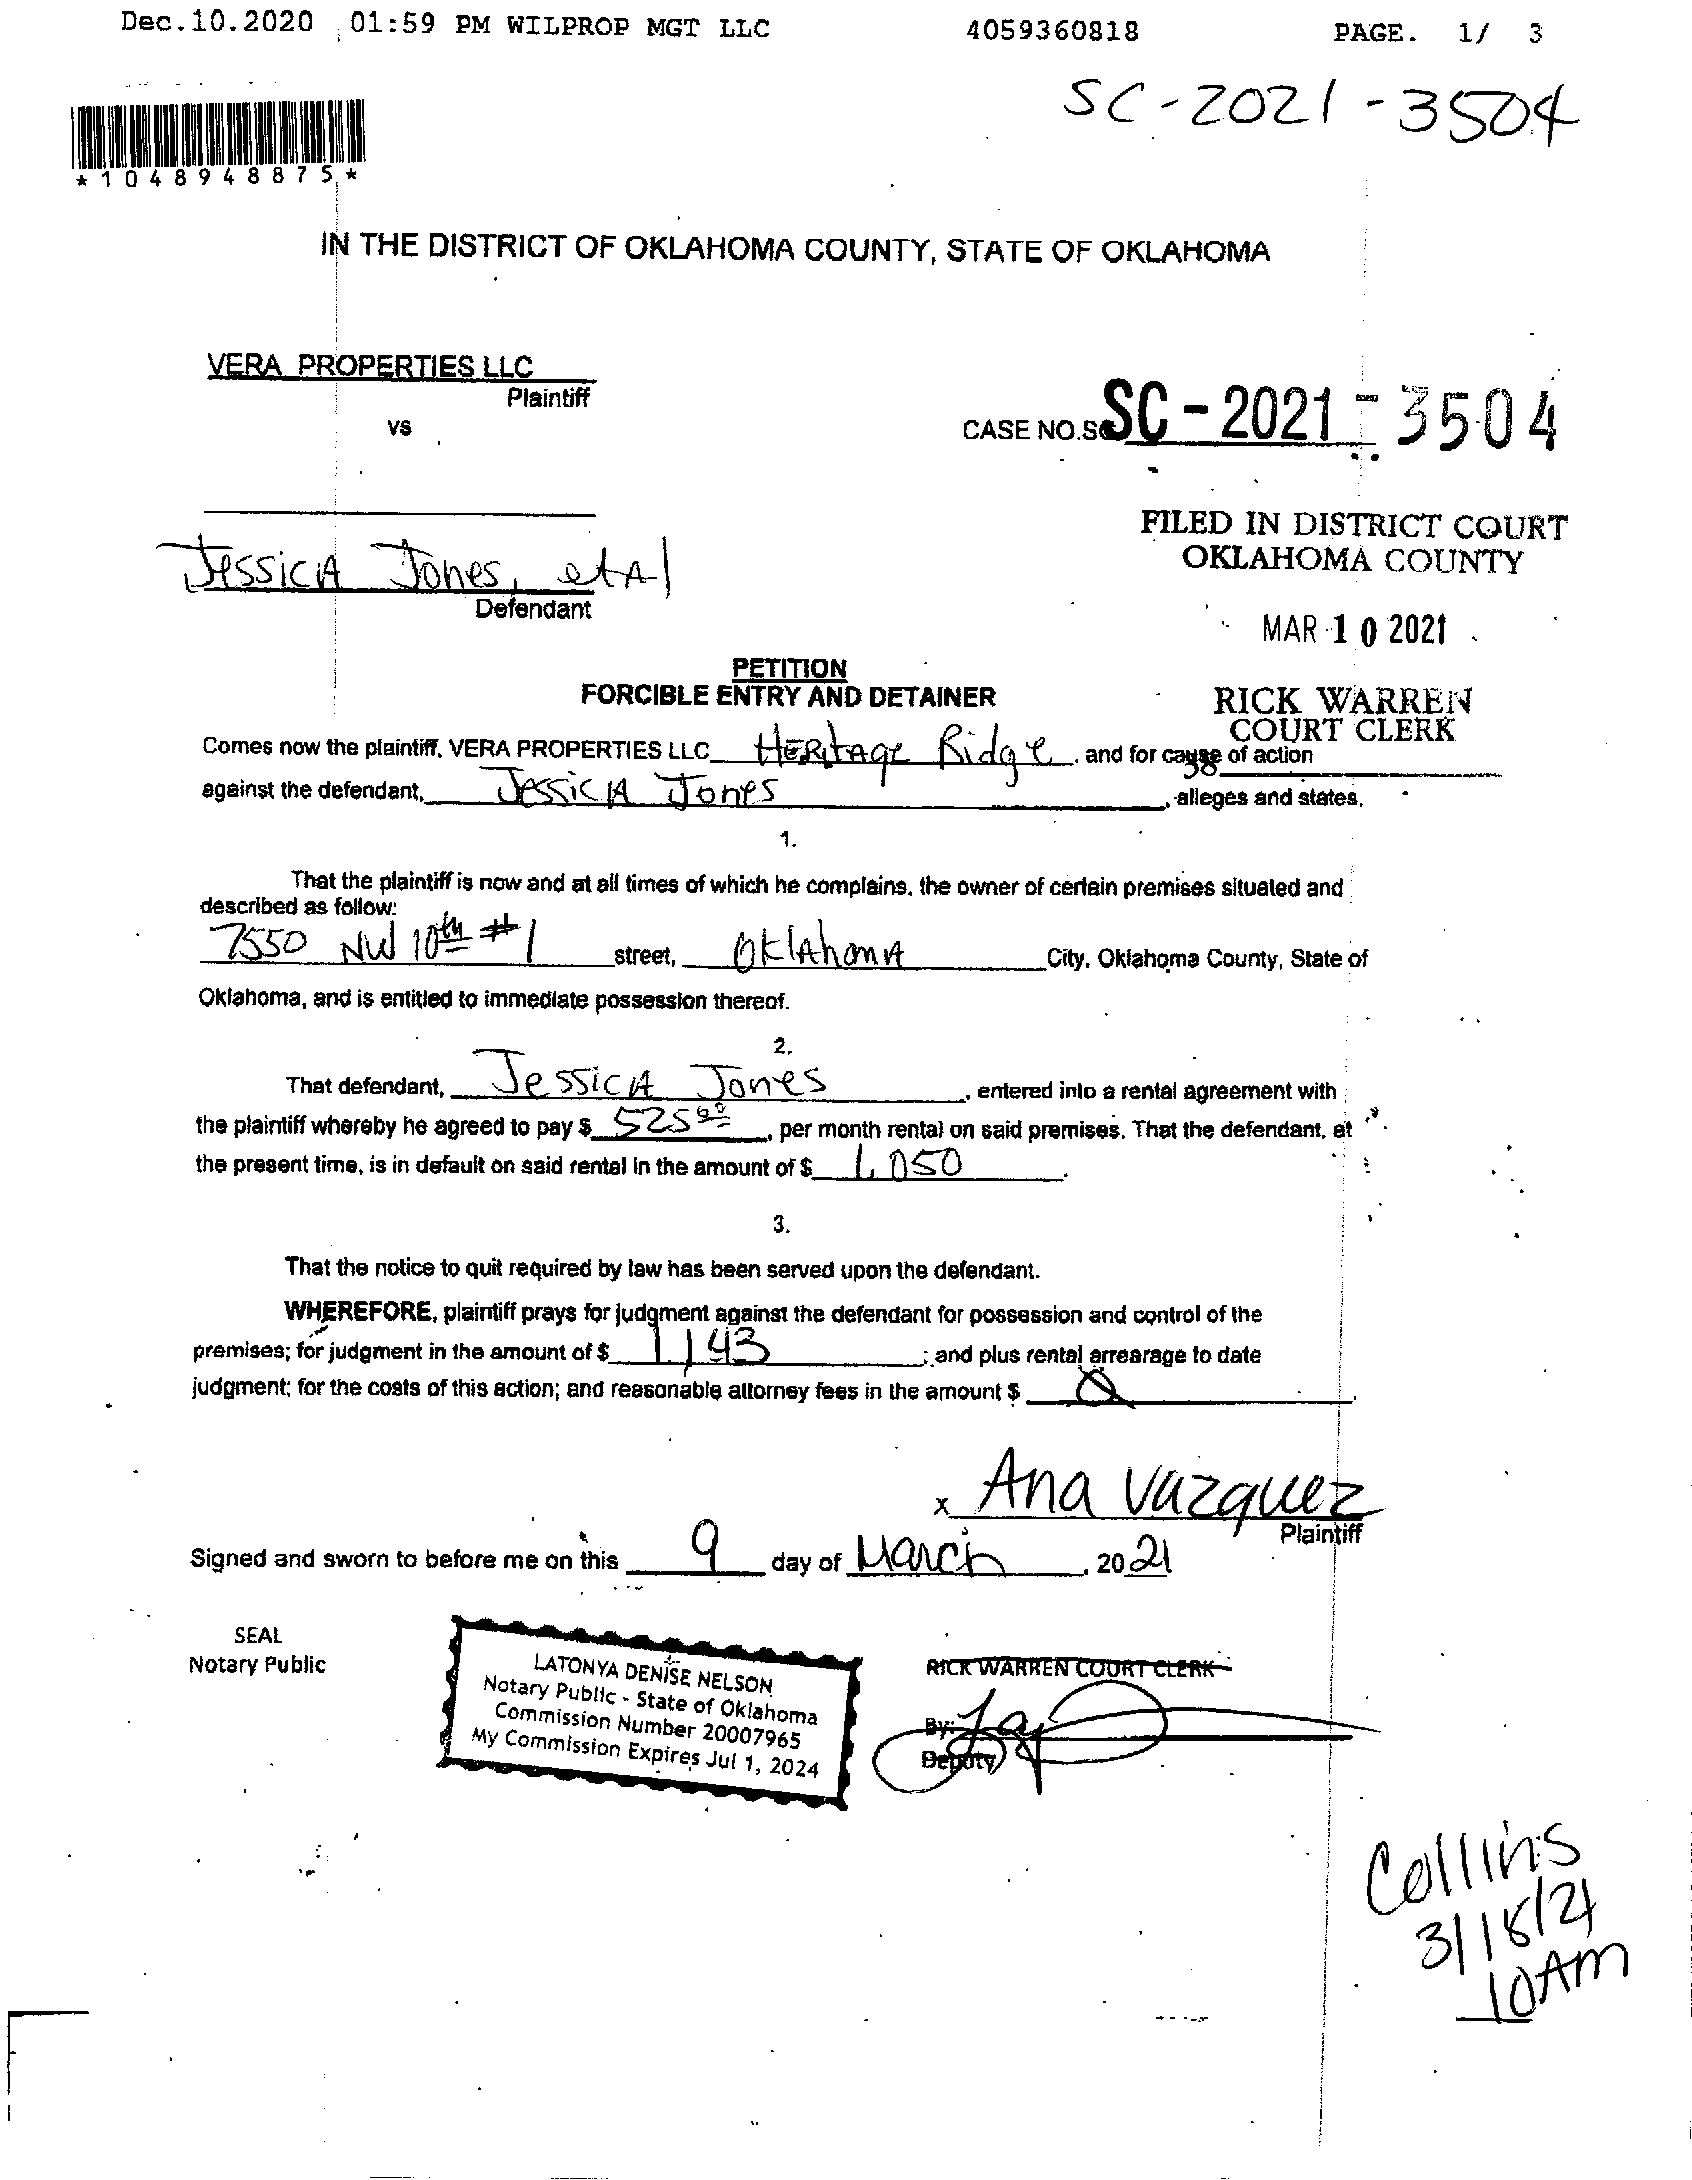 Dec.10.2020 01:59 PM WILPROP MGT LLC 4059360818 PAGE. 1/ 3
SC-2021-3504
*1048948875*
IN THE DISTRICT OF OKLAHOMA COUNTY, STATE OF OKLAHOMA
VERA PROPERTIES LLC
Plaintiff
vs
CASE NO.SC SC-2021-3504
FILED IN DISTRICT COURT
OKLAHOMA COUNTY
Jessica Jones, et Al
Defendant
MAR 10 2021
PETITION
FORCIBLE ENTRY AND DETAINER
RICK WARREN
COURT CLERK
Comes now the plaintiff, VERA PROPERTIES LLC Heritage Ridge, and for cause of action
38
against the defendant, Jessica Jones, alleges and states.
1.
That the plaintiff is now and at all times of which he complains, the owner of certain premises situated and
described as follow:
7550 NW 10th #1 street, Oklahoma City, Oklahoma County, State of
Oklahoma, and is entitled to immediate possession thereof.
2.
That defendant, Jessica Jones, entered into a rental agreement with
the plaintiff whereby he agreed to pay $ 525.00, per month rental on said premises. That the defendant, at
the present time, is in default on said rental in the amount of $ 1,050.
3.
That the notice to quit required by law has been served upon the defendant.
WHEREFORE, plaintiff prays for judgment against the defendant for possession and control of the
premises; for judgment in the amount of $ 1,143; and plus rental arrearage to date
judgment; for the costs of this action; and reasonable attorney fees in the amount $ 0.
x Ana Vazquez
Plaintiff
Signed and sworn to before me on this 9 day of March, 2021
SEAL
Notary Public
LATONYA DENISE NELSON
Notary Public - State of Oklahoma
Commission Number 20007965
My Commission Expires Jul 1, 2024
RICK WARREN COURT CLERK
By:
Deputy
Collins
3/18/21
10AM